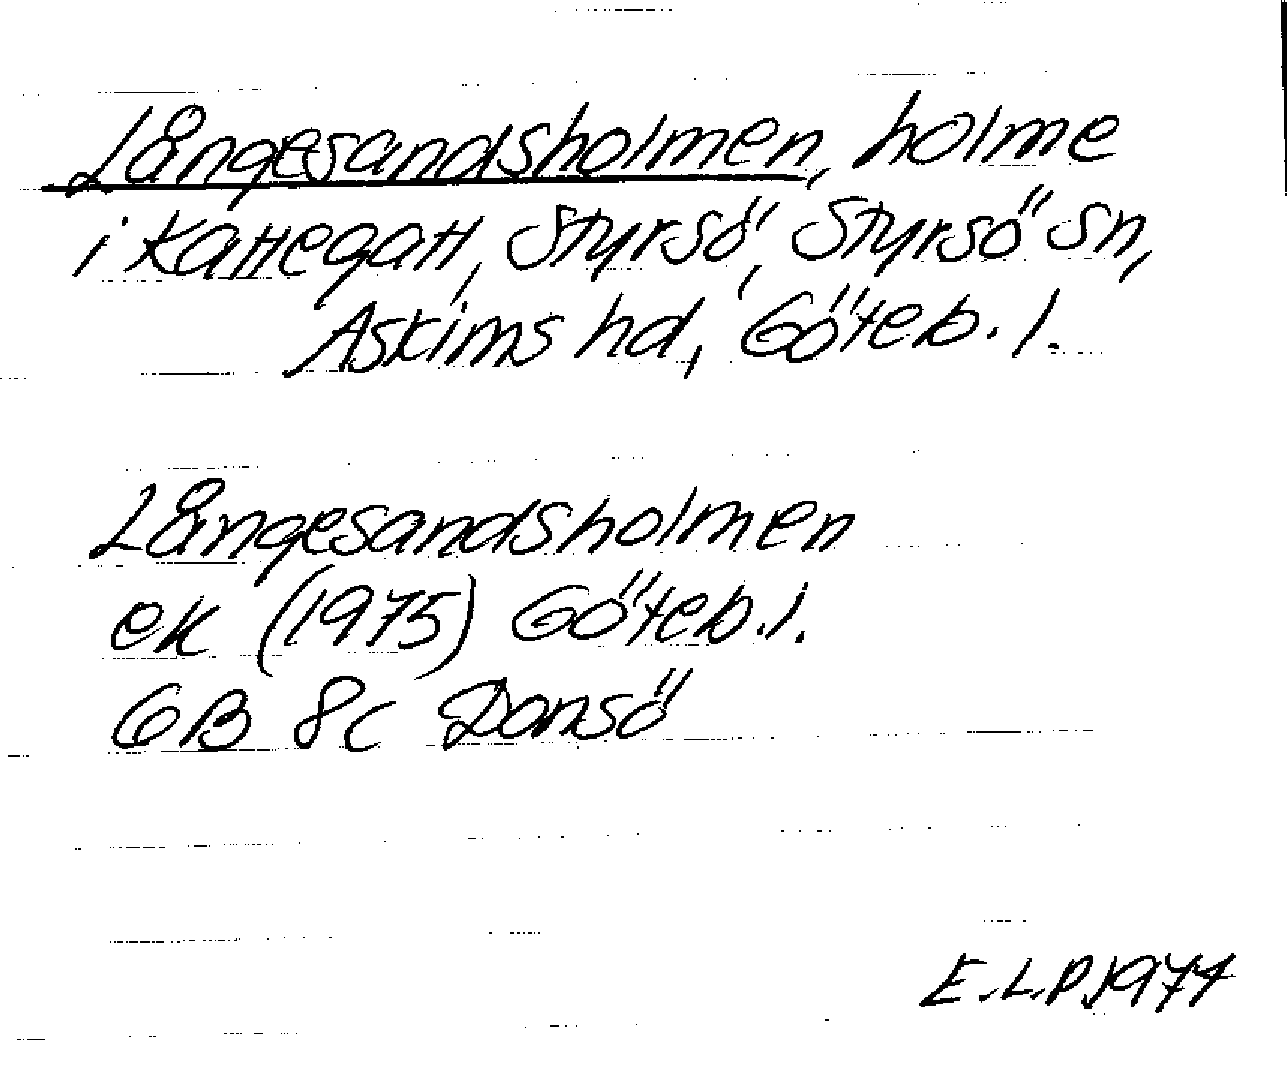 Långesandsholmen, holme
i Kattegatt, Styrsö, Styrsö sn,
Askims hd, Göteb. l.
Långesandsholmen
ek (1975) Göteb. l.
GB 8c Donsö
E.L.P. 1977